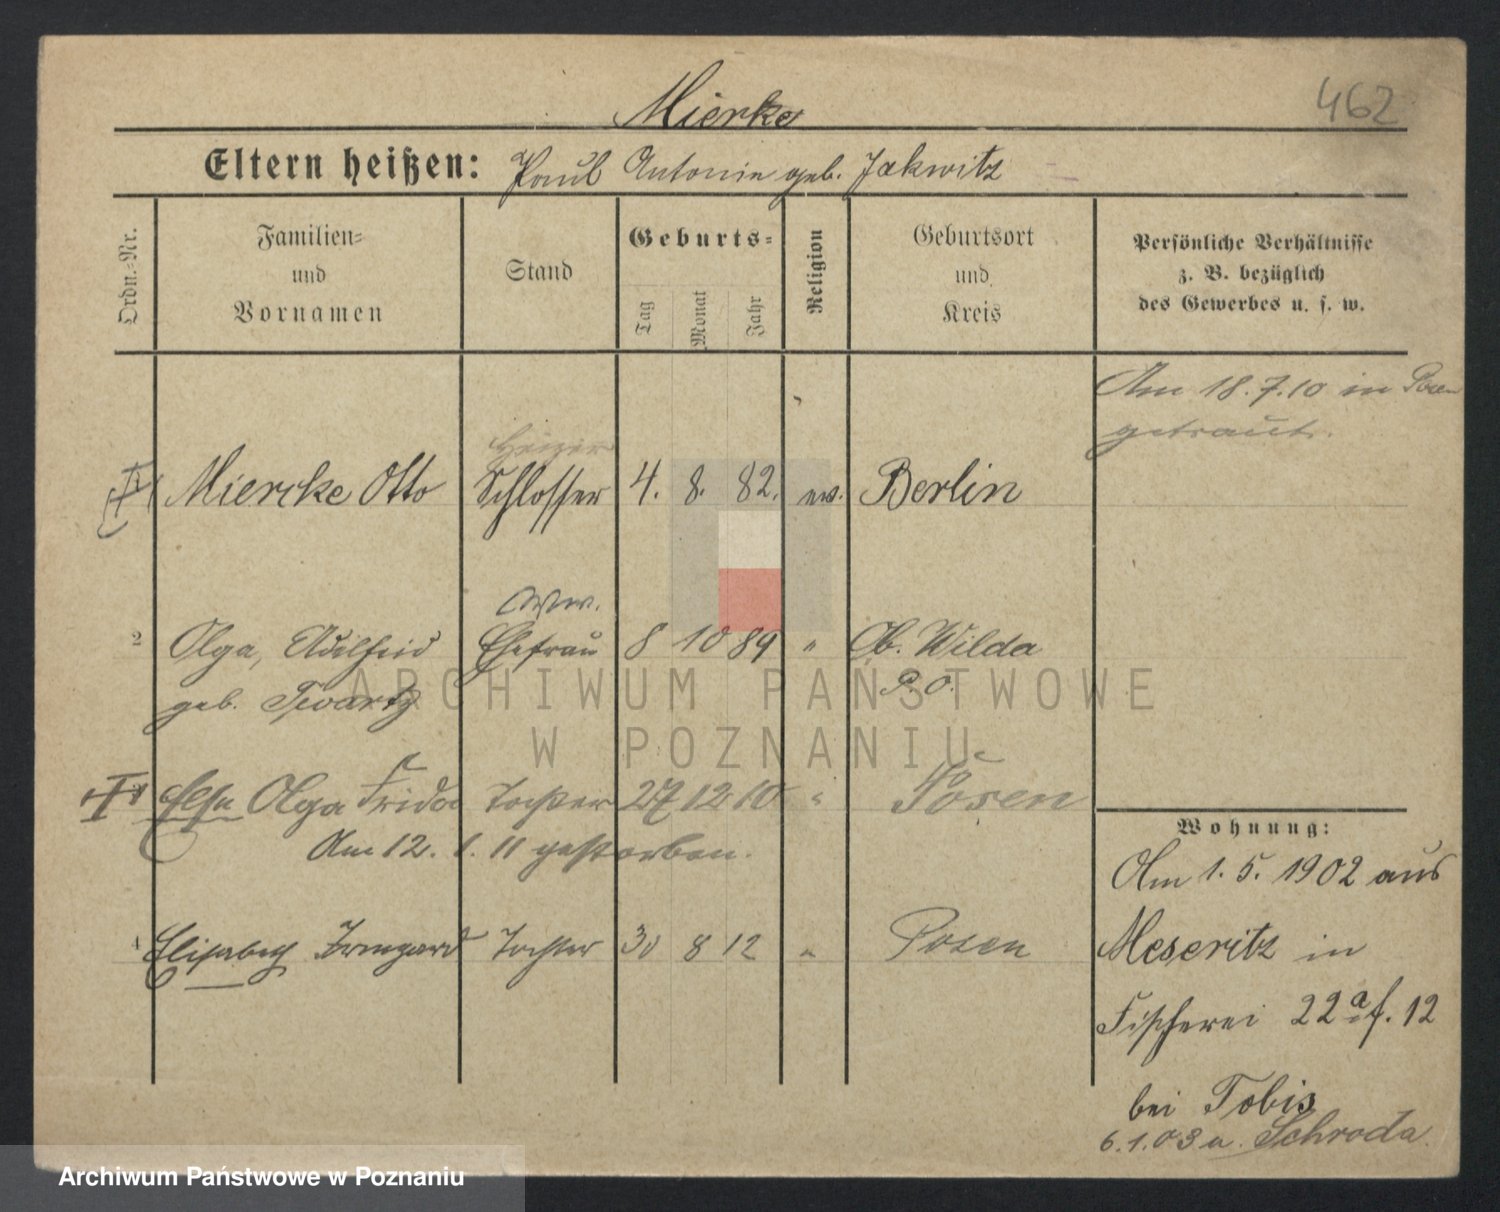 462
Mierke
Eltern heißen: Paul Antonin geb. Jakwitz
Ordn.-Nr.
Familien- und Vornamen
Stand
Geburts-
Tag
Monat
Jahr
Religion
Geburtsort und Kreis
Persönliche Verhältnisse z. B. bezüglich des Gewerbes u. s. w.
Am 18.7.10 in Posen
getraut.
Heizer
Miercke Otto Schlosser 4. 8. 82. ev. Berlin
Wwe.
2 Olga, Ehefrau 8 10 89 " Ob. Wilda
geb. P. O.
Elsa Olga Frida Tochter 27 12 10 " Posen
Am 12. 1. 11 gestorben.
4 Elisabeth Irmgard Tochter 30 8 12 " Posen
Wohnung:
Am 1. 5. 1902 aus
Meseritz in
Fischerei 22a f. 12
bei Tobis
6.1.03 n. Schroda.
ARCHIWUM PAŃSTWOWE
W POZNANIU
Archiwum Państwowe w Poznaniu